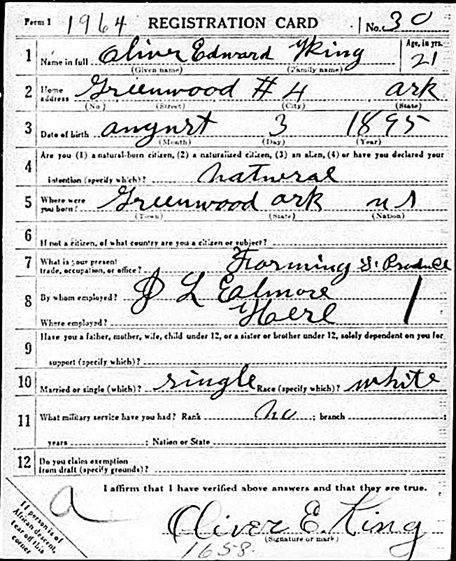 Form 1 1964 REGISTRATION CARD No. 30
1 Name in full Oliver Edward King Age, in yrs. 21
(Given name) (Family name)
2 Home address Greenwood #4 Ark
(No.) (Street) (City) (State)
3 Date of birth August 3 1895
(Month) (Day) (Year)
Are you (1) a natural-born citizen, (2) a naturalized citizen, (3) an alien, (4) or have you declared your
4 intention (specify which)? natural
5 Where were you born? Greenwood ark US
(Town) (State) (Nation)
6 If not a citizen, of what country are you a citizen or subject?
7 What is your present trade, occupation, or office? Farming & Produce
8 By whom employed? J L Elmore
Where employed? Here
9 Have you a father, mother, wife, child under 12, or a sister or brother under 12, solely dependent on you for
support (specify which)?
10 Married or single (which)? single Race (specify which)? white
11 What military service have you had? Rank no ; branch ;
years ; Nation or State
12 Do you claim exemption from draft (specify grounds)?
I affirm that I have verified above answers and that they are true.
a
Oliver E. King
(Signature or mark)
1658.
If person is of
African descent,
tear off this
corner